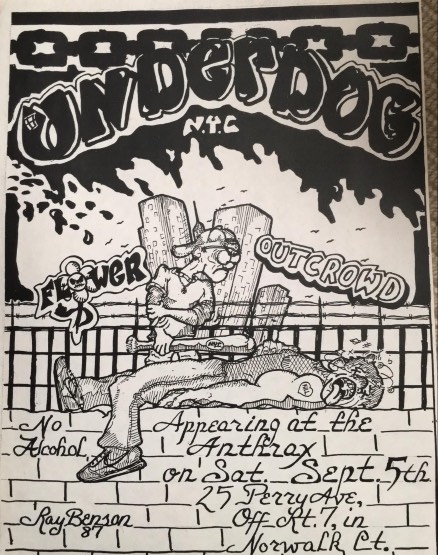 UNDERDOG
N.Y.C
FLOWER
OUTCROWD
No
Alcohol
Appearing at the
Anthrax
on Sat. Sept. 5th
25 Perry Ave,
Off Rt. 7, in
Norwalk Ct.
Ray Benson
87